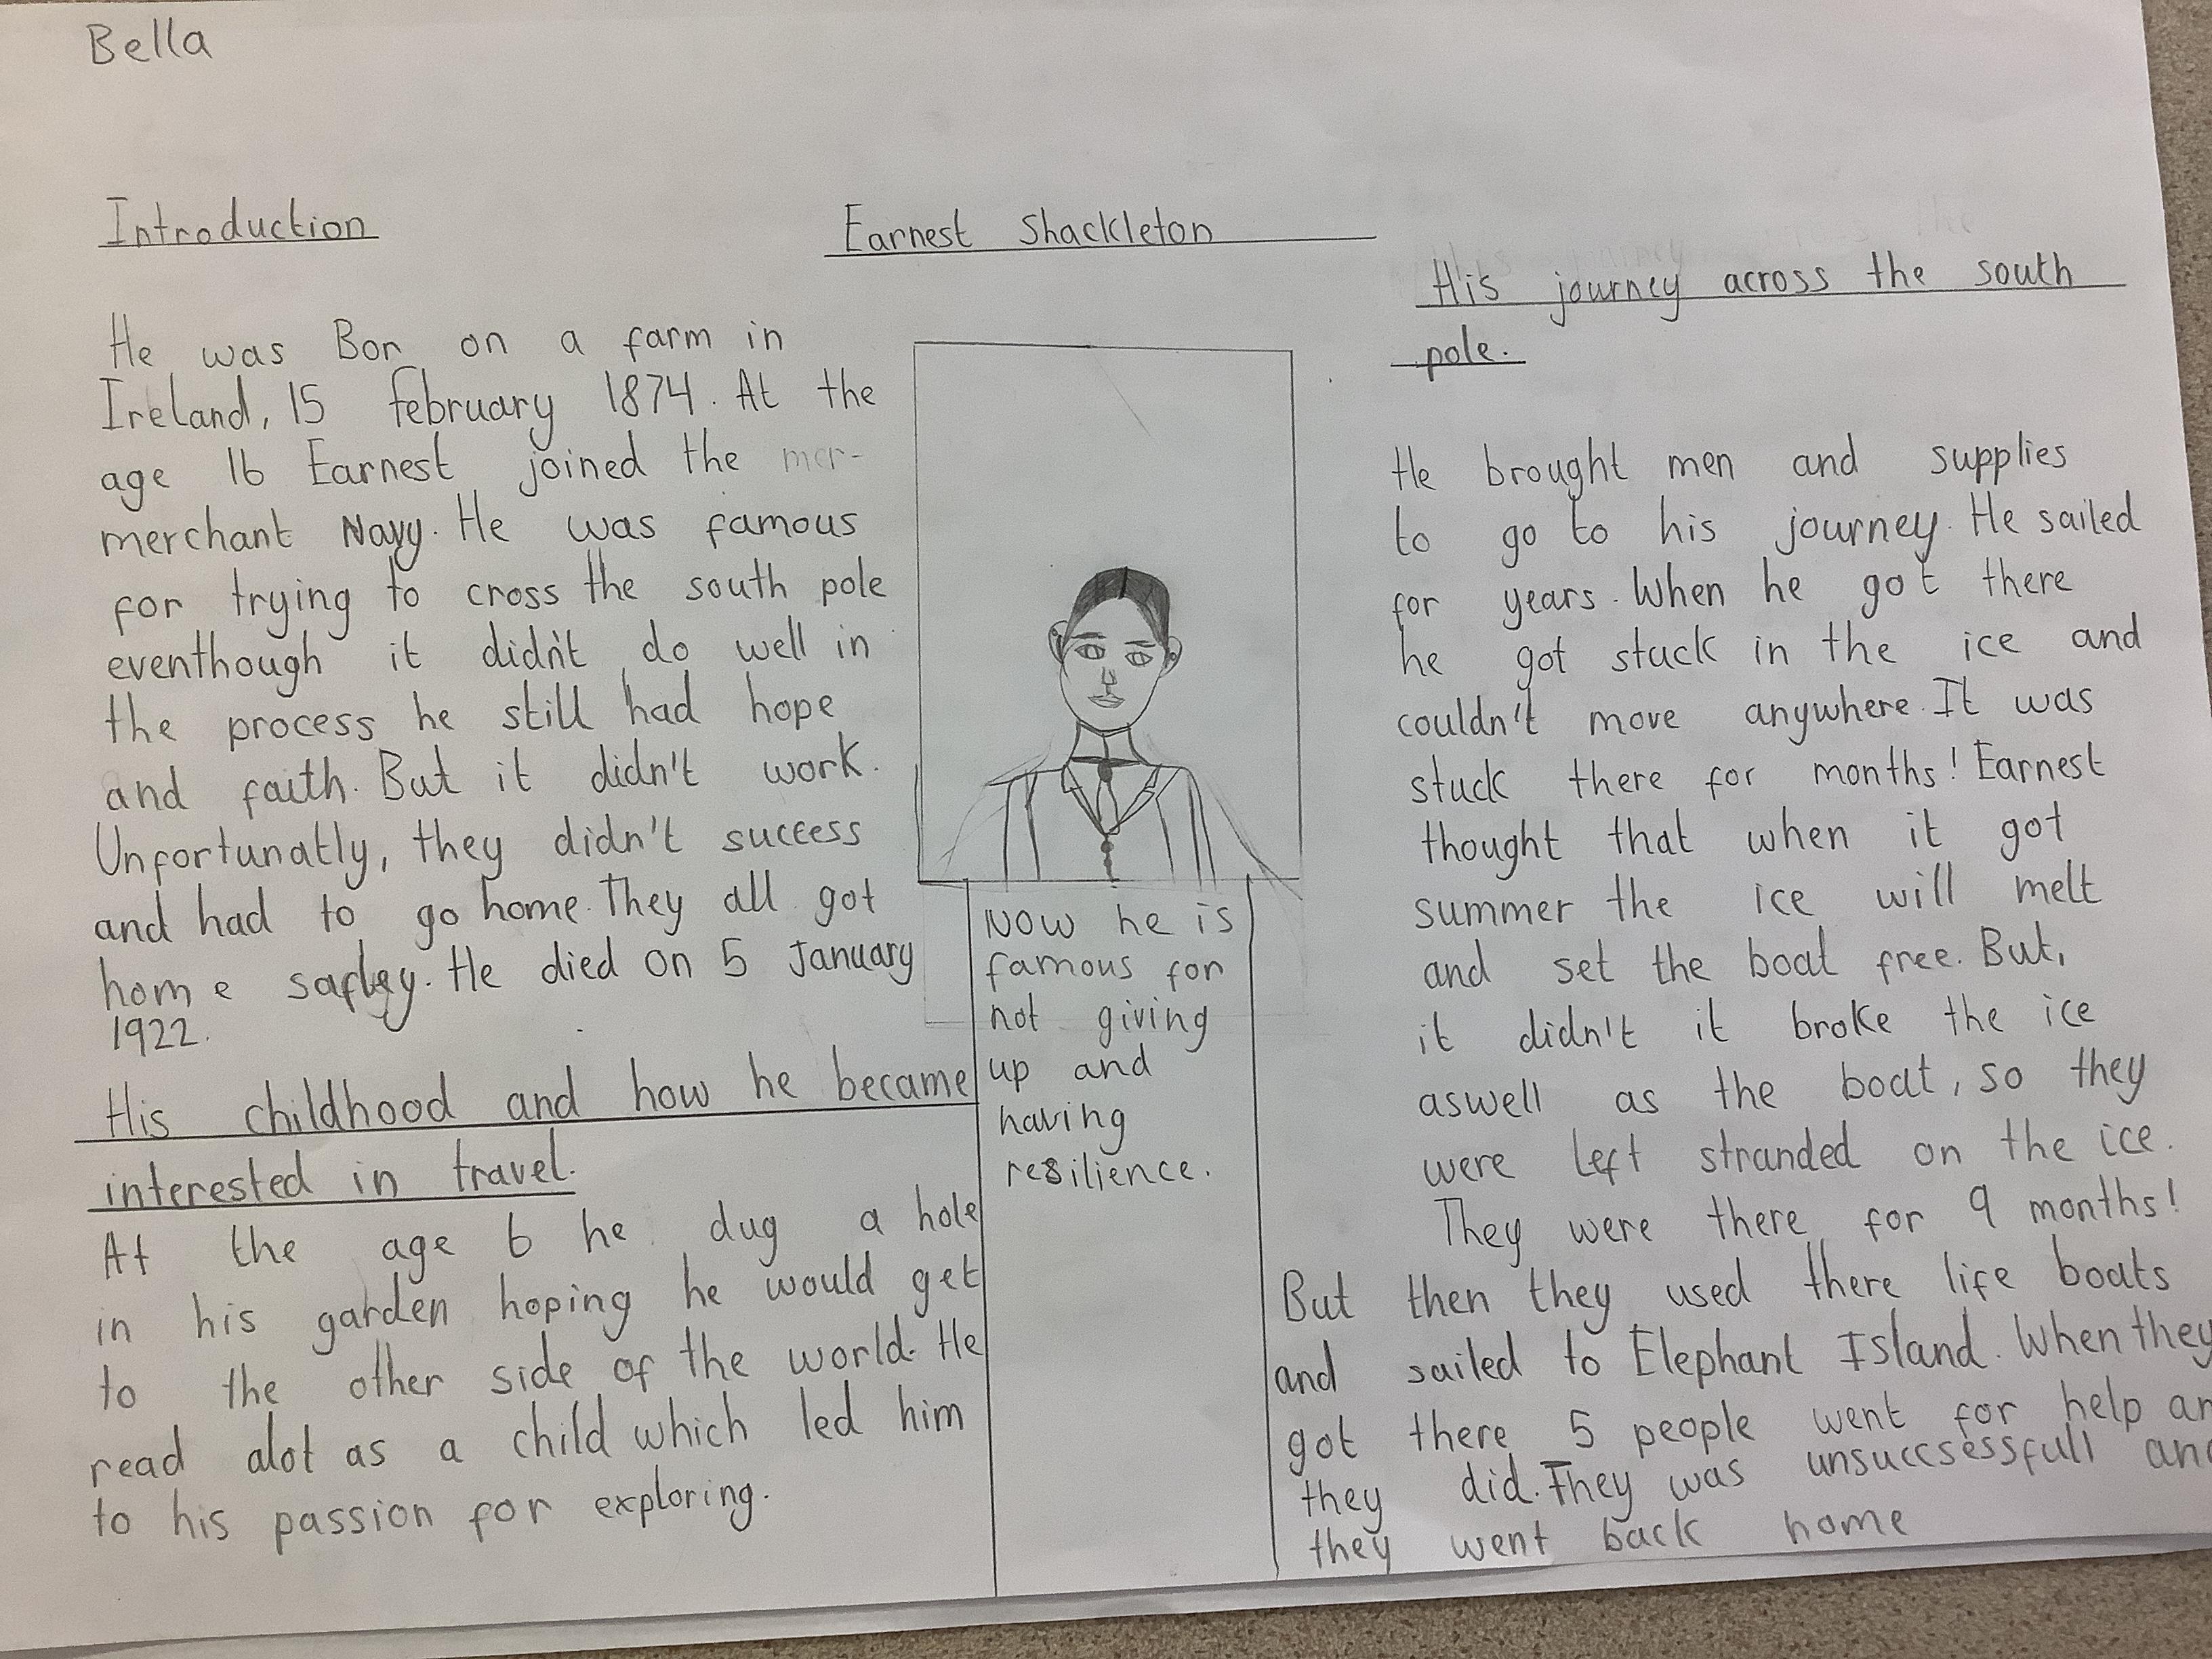 Bella
Introduction
He was Bon on a farm in
Ireland, 15 february 1874. At the
age 16 Earnest joined the mer-
merchant Navy. He was famous
for trying to cross the south pole
eventhough it didn't do well in
the process he still had hope
and faith. But it didn't work.
Unfortunatly, they didn't success
and had to go home. They all got
home safley. He died on 5 January
1922.
His childhood and how he became
interested in travel.
At the age 6 he dug a hole
in his garden hoping he would get
to the other side of the world. He
read alot as a child which led him
to his passion for exploring.
Earnest Shackleton
Now he is
famous for
not giving
up and
having
resilience.
His journey across the south
pole.
He brought men and supplies
to go to his journey. He sailed
for years. When he got there
he got stuck in the ice and
couldn't move anywhere. It was
stuck there for months! Earnest
thought that when it got
summer the ice will melt
and set the boat free. But,
it didn't it broke the ice
aswell as the boat, so they
were left stranded on the ice.
They were there for 9 months!
But then they used there life boats
and sailed to Elephant Island. When they
got there 5 people went for help an
they did. They was unsuccsessfull and
they went back home